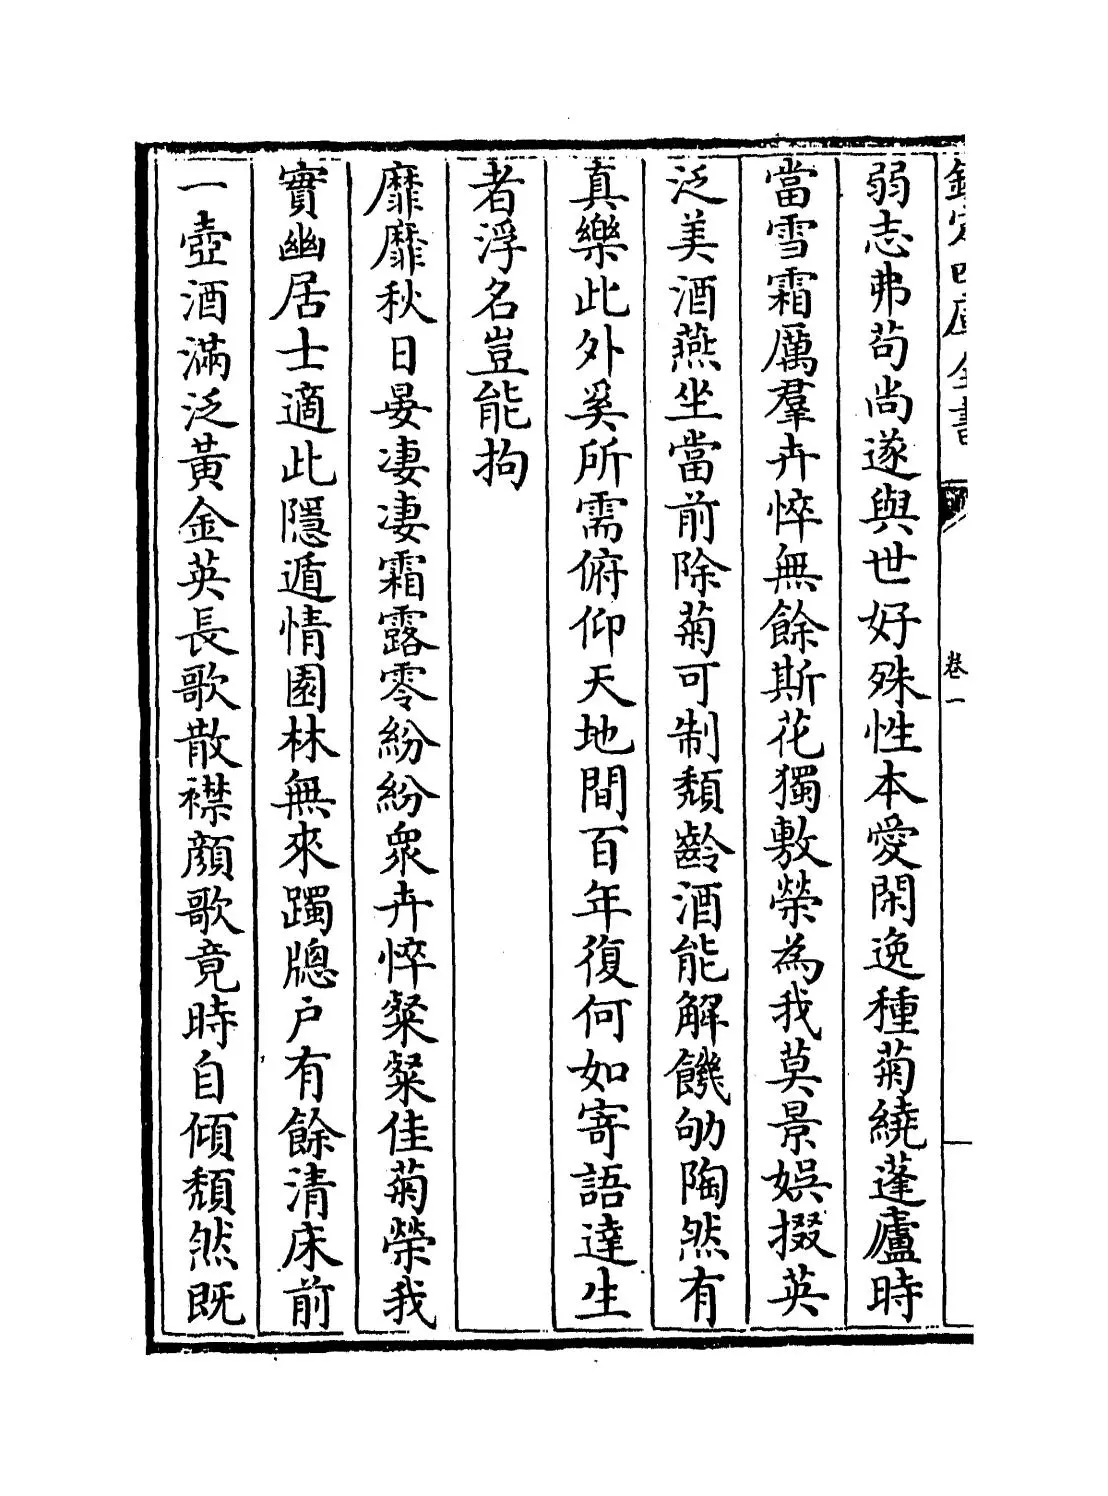 欽定四庫全書
卷一
弱志弗苟尚遂與世好殊性本愛閑逸種菊繞蓬廬時
當雪霜厲羣卉悴無餘斯花獨敷榮為我莫景娛掇英
泛美酒燕坐當前除菊可制頹齡酒能解饑劬陶然有
真樂此外奚所需俯仰天地間百年復何如寄語達生
者浮名豈能拘
靡靡秋日晏凄凄霜露零紛紛衆卉悴粲粲佳菊榮我
實幽居士適此隱遁情園林無來躅牕户有餘清床前
一壺酒滿泛黃金英長歌散襟顔歌竟時自傾頹然既